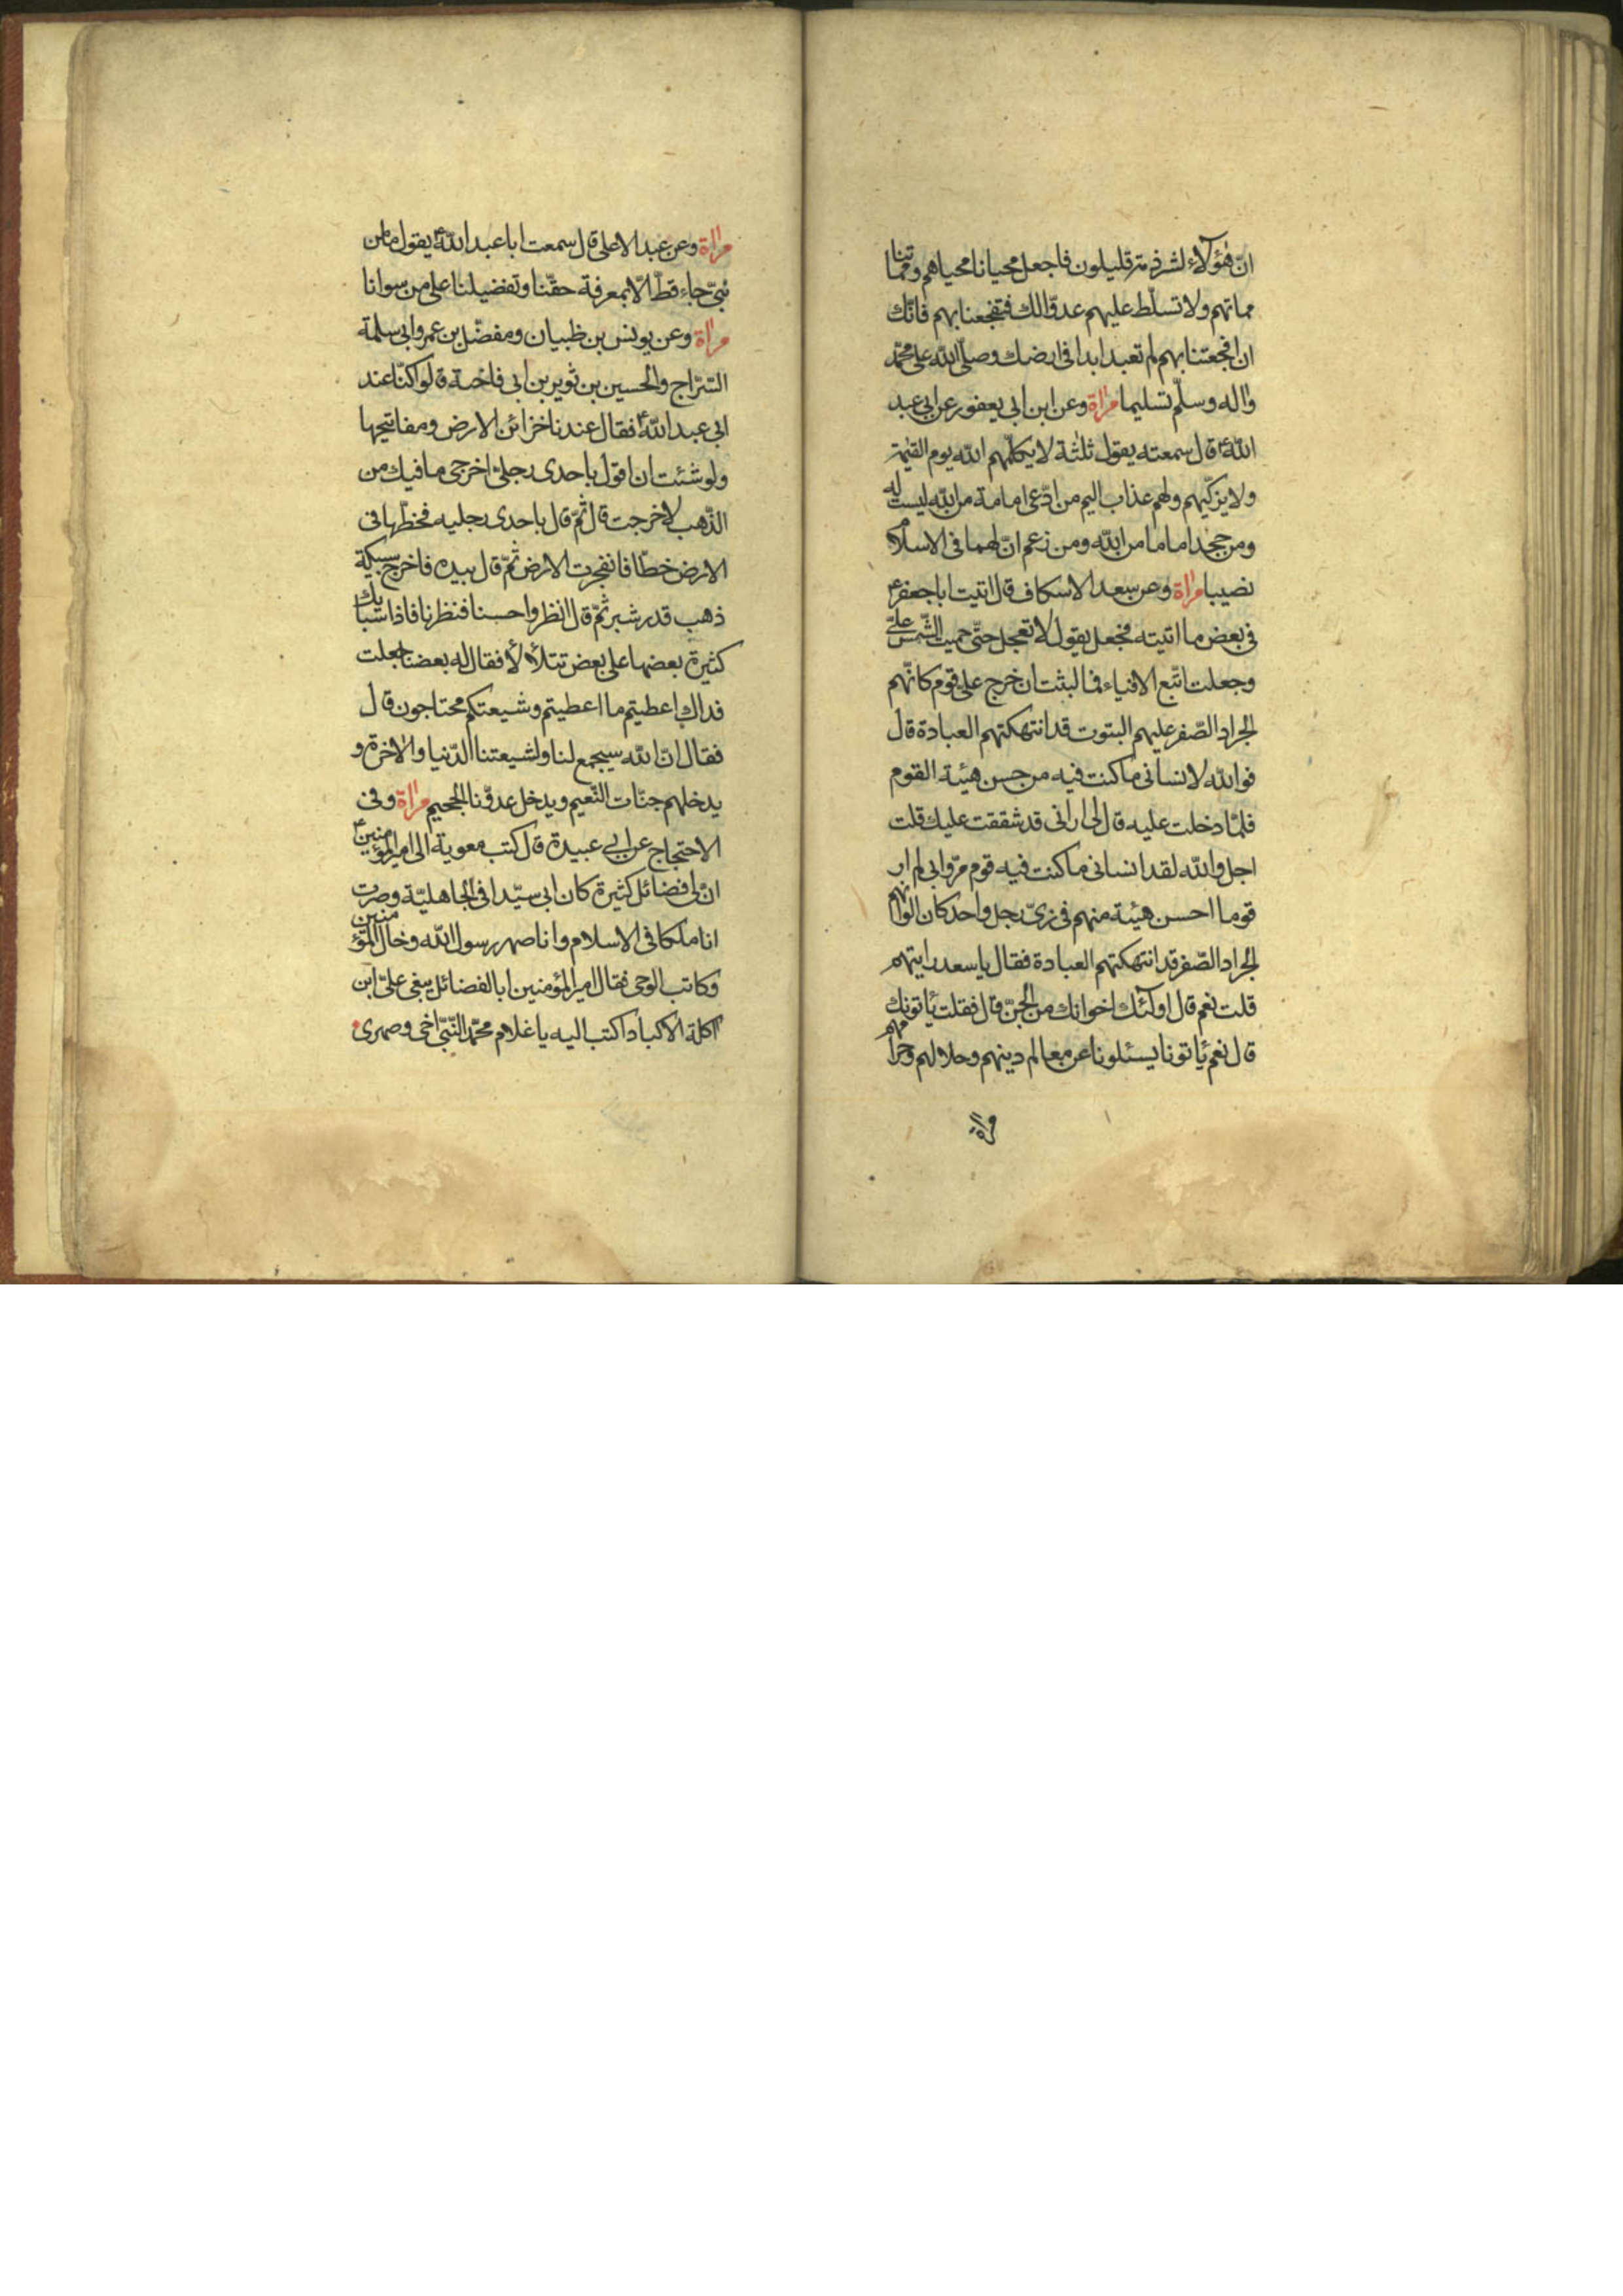 انّ هؤلاء لشرذمة قليلون فاجعل محيانا محياهم ومماتنا
مماتهم ولا تسلّط عليهم عدوّا لك فتفجعنا بهم فانّك
ان افجعتنا بهم لم تعبد ابدا فى ارضك وصلّى اللّه على محمّد
واله وسلّم تسليما مراة وعن ابن ابى يعفور عن ابى عبد
اللّه ع قال سمعته يقول ثلثة لا يكلّمهم اللّه يوم القيمة
ولا يزكّيهم ولهم عذاب اليم من ادّعى امامة من اللّه ليست له
ومن جحد اماما من اللّه ومن زعم انّ لهما فى الاسلام
نصيبا مراة وعن سعد الاسكاف قال اتيت ابا جعفر ع
فى بعض ما اتيته فجعل يقول لا تعجل حتّى حميت الشّمس علىّ
وجعلت اتّبع الافياء فما لبثت ان خرج على قوم كانّهم
الجراد الصّفر عليهم البتوت قد انتهكتهم العبادة قال
فواللّه لانسانى ما كنت فيه من حسن هيئة القوم
فلمّا دخلت عليه قال لى ارانى قد شققت عليك قلت
اجل واللّه لقد انسانى ما كنت فيه قوم مرّوا بى لم ار
قوما احسن هيئة منهم فى زىّ رجل واحد كان الوانهم
الجراد الصّفر قد انتهكتهم العبادة فقال يا سعد رايتهم
قلت نعم قال اولئك اخوانك من الجنّ قال فقلت ياتونك
قال نعم ياتونا يسئلونا عن معالم دينهم وحلالهم وحرامهم
مراة
مراة وعن عبد الاعلى قال سمعت ابا عبد اللّه ع يقول ما من
نبىّ جاء قطّ الّا بمعرفة حقّنا وتفضيلنا على من سوانا
مراة وعن يونس بن ظبيان ومفضّل بن عمر وابى سلمة
السّرّاج والحسين بن ثوير بن ابى فاختة قالوا كنّا عند
ابى عبد اللّه ع فقال عندنا خزائن الارض ومفاتيحها
ولو شئت ان اقول باحدى رجلىّ اخرجى ما فيك من
الذّهب لاخرجت قال ثمّ قال باحدى رجليه فخطّها فى
الارض خطّا فانفجرت الارض ثمّ قال بيده فاخرج سبيكة
ذهب قدر شبر ثمّ قال انظروا حسنا فنظرنا فاذا سبايك
كثيرة بعضها على بعض تتلألأ فقال له بعضنا جعلت
فداك اعطيتم ما اعطيتم وشيعتكم محتاجون قال
فقال انّ اللّه سيجمع لنا ولشيعتنا الدّنيا والاخرة و
يدخلهم جنّات النّعيم ويدخل عدوّنا الجحيم مراة وفى
الاحتجاج عن ابى عبيدة قال كتب معوية الى امير المؤمنين ع
انّ لى فضائل كثيرة كان ابى سيّدا فى الجاهليّة وصرت
انا ملكا فى الاسلام وانا صهر رسول اللّه وخال المؤمنين
وكاتب الوحى فقال امير المؤمنين ابالفضائل يبغى علىّ ابن
آكلة الاكباد اكتب اليه يا غلام محمّد النّبىّ اخى وصهرى